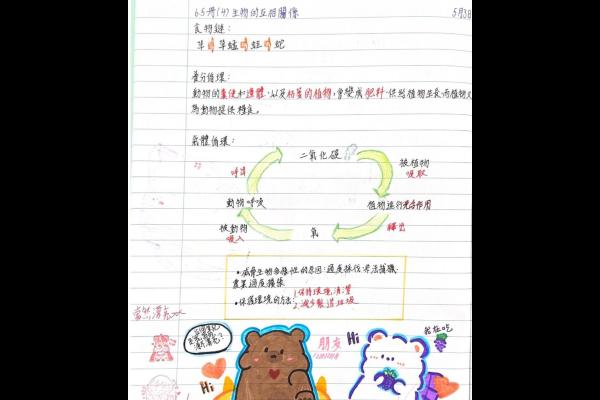 6.5冊(4)生物的互相關係 5月3日
食物鏈：
草 草蜢 蛙 蛇
養分循環：
動物的糞便和遺體，以及枯萎的植物，會變成肥料，供給植物生長，而植物又
為動物提供糧食。
氣體循環：
二氧化碳
呼出
被植物
吸取
動物呼吸
植物進行光合作用
被動物
吸入
氧
釋出
•威脅生物多樣性的原因：過度採伐、非法捕獵、
農業過度擴張
•保護環境的方法：1.保持環境清潔
2.減少製造垃圾
朋友
我在吃
Hi
Hi